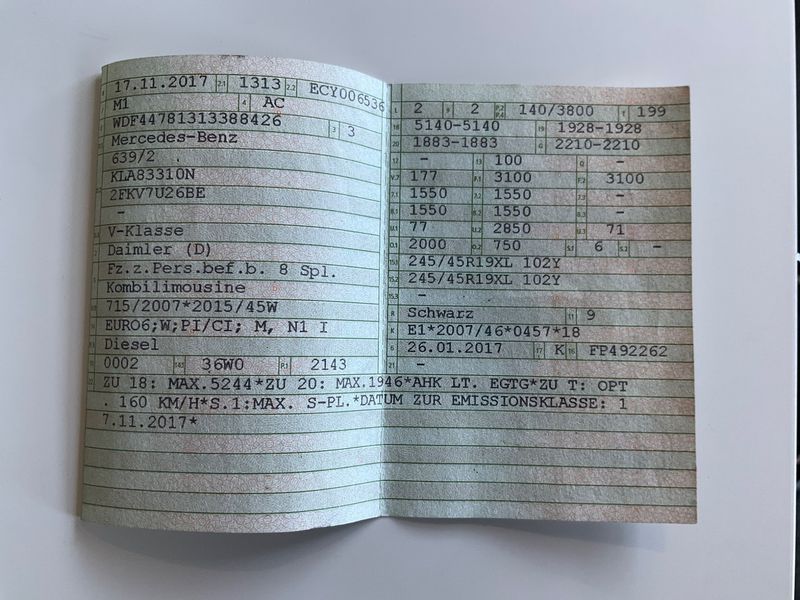 17.11.2017 2.1 1313 2.2 ECY006536
M1 4 AC
WDF44781313388426 3 3
Mercedes-Benz
639/2
KLA83310N
2FKV7U26BE
-
V-Klasse
Daimler (D)
Fz.z.Pers.bef.b. 8 Spl.
Kombilimousine
715/2007*2015/45W
EURO6;W;PI/CI; M, N1 I
Diesel
0002 14.1 36W0 P.1 2143
L 2 9 2 P.2 P.4 140/3800 T 199
18 5140-5140 19 1928-1928
20 1883-1883 G 2210-2210
12 - 13 100 Q -
V.7 177 F.1 3100 F.2 3100
7.1 1550 7.2 1550 7.3 -
8.1 1550 8.2 1550 8.3 -
U.1 77 U.2 2850 U.3 71
O.1 2000 O.2 750 S.1 6 S.2 -
15.1 245/45R19XL 102Y
15.2 245/45R19XL 102Y
15.3 -
R Schwarz 11 9
K E1*2007/46*0457*18
6 26.01.2017 17 K 16 FP492262
21 -
22 ZU 18: MAX.5244*ZU 20: MAX.1946*AHK LT. EGTG*ZU T: OPT
. 160 KM/H*S.1:MAX. S-PL.*DATUM ZUR EMISSIONSKLASSE: 1
7.11.2017*